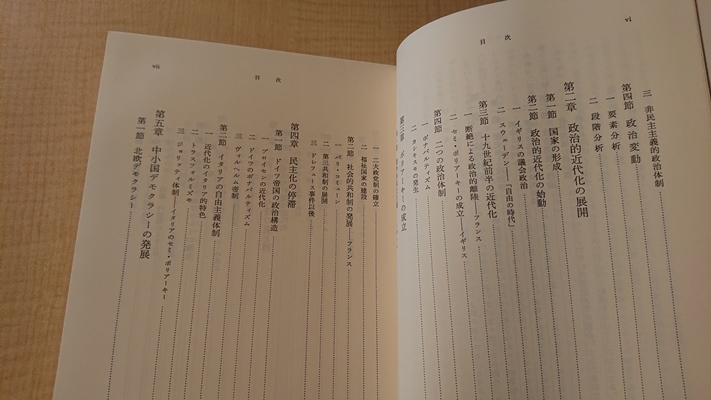 vi
目次
三 非民主主義的政治体制
第四節 政治変動
一 要素分析
二 段階分析
第二章 政治的近代化の展開
第一節 国家の形成
第二節 政治的近代化の始動
一 イギリスの議会政治
二 スウェーデン――「自由の時代」
第三節 十九世紀前半の近代化
一 断絶による政治的離陸――フランス
二 セミ・ポリアーキーの成立――イギリス
第四節 二つの政治体制
一 ボナパルティズム
二 カシキスモの発生
第三章 ポリアーキーの成立
vii
目次
一 二大政党制の確立
二 福祉国家の建設
第二節 社会的共和制の発展――フランス
一 パリ・コミューン
二 第三共和制の展開
三 ドレフュース事件以後
第四章 民主化の停滞
第一節 ドイツ帝国の政治構造
一 プロイセンの近代化
二 ドイツのボナパルティズム
三 ヴィルヘルム帝制
第二節 イタリアの自由主義体制
一 近代化のイタリア的特色
二 トラスフォルミズモ
三 ジョリッティ体制――イタリアのセミ・ポリアーキー
第五章 中小国デモクラシーの発展
第一節 北欧デモクラシー